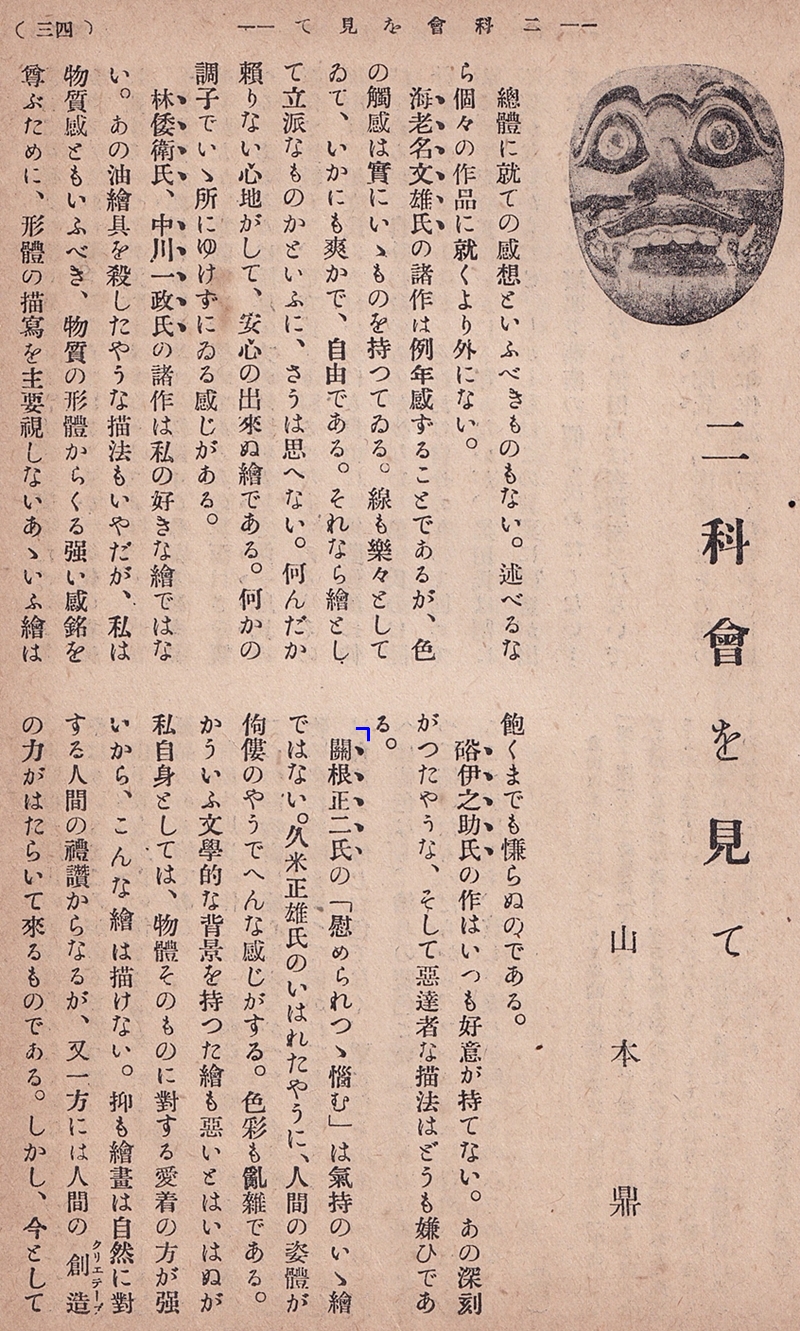 （三四）
——二科會を見て——
二科會を見て
山本鼎
總體に就ての感想といふべきものもない。述べるな
ら個々の作品に就くより外にない。
海老名文雄氏の諸作は例年感ずることであるが、色
の觸感は實にいゝものを持つてゐる。線も樂々として
ゐて、いかにも爽かで、自由である。それなら繪とし
て立派なものかといふに、さうは思へない。何んだか
賴りない心地がして、安心の出來ぬ繪である。何かの
調子でいゝ所にゆけずにゐる感じがある。
林倭衛氏、中川一政氏の諸作は私の好きな繪ではな
い。あの油繪具を殺したやうな描法もいやだが、私は
物質感ともいふべき、物質の形體からくる强い感銘を
尊ぶために、形體の描寫を主要視しないあゝいふ繪は
飽くまでも慊らぬのである。
硲伊之助氏の作はいつも好意が持てない。あの深刻
がつたやうな、そして惡達者な描法はどうも嫌ひであ
る。
關根正二氏の「慰められつゝ惱む」は氣持のいゝ繪
ではない。久米正雄氏のいはれたやうに、人間の姿體が
佝僂のやうでへんな感じがする。色彩も亂雜である。
かういふ文學的な背景を持つた繪も惡いとはいはぬが
私自身としては、物體そのものに對する愛着の方が强
いから、こんな繪は描けない。抑も繪畫は自然に對
する人間の禮讃からなるが、又一方には人間の創造
クリエテーブ
の力がはたらいて來るものである。しかし、今として